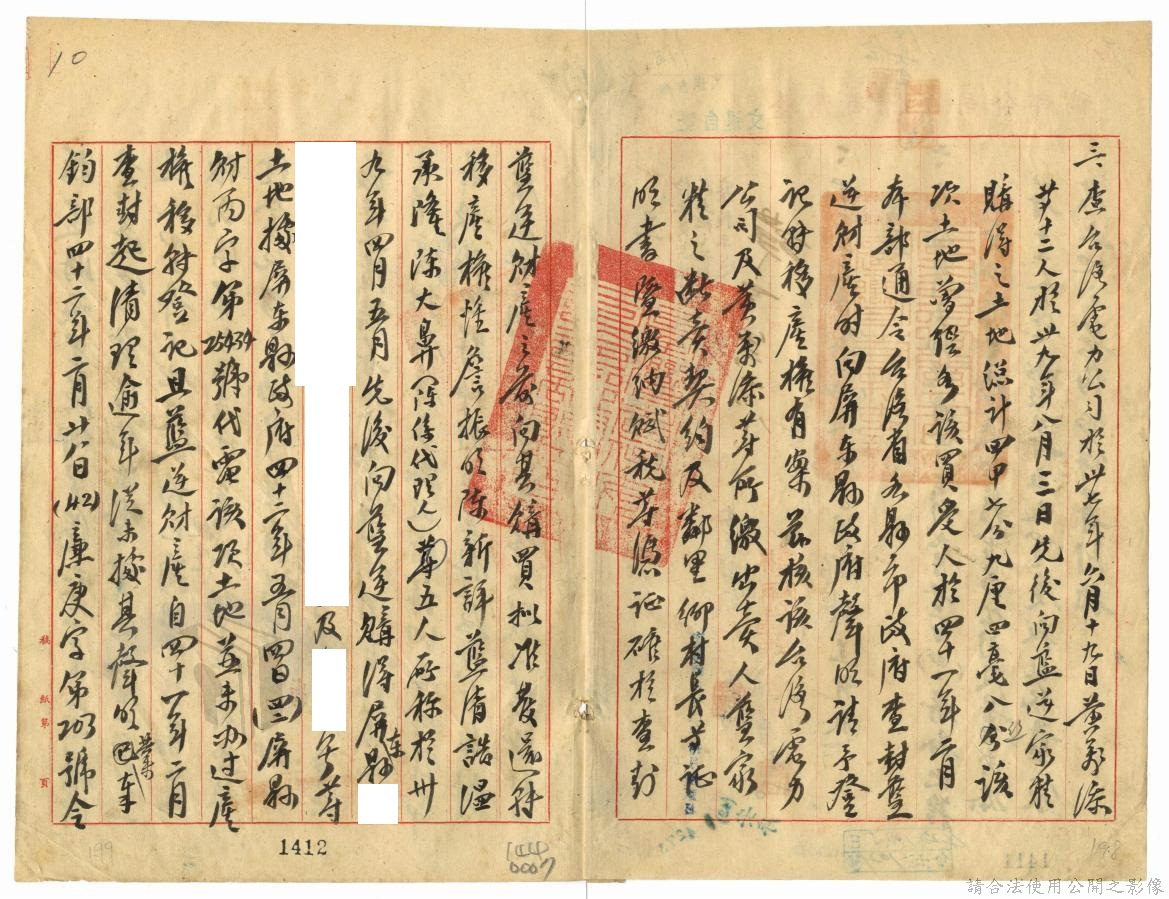 三、查台灣電力公司於卅七年六月十九日黃新添
等十二人於卅九年八月三日先後向藍逆家精
購得之土地總計四甲七分九厘四毫八絲該
項土地曾經各該買受人於四十一年二月
本部通令台灣省各縣市政府查封藍
逆財產時向屏東縣政府聲明請予登
記財移產權有案茲核該台灣電力
公司及黃新添等所繳出賣人藍家
精之斷賣契約及鄰里鄉村長等證
明書暨繳納賦稅等憑証確於查封
藍逆財產之前向其購買擬准發還財
移產權惟詹振明陳新評藍清諧溫
承隆陳大鼻(陳係代理人)等五人所称於卅
九年四月五月先後向藍逆購得屏東縣
及
等
土地據屏東縣政府四十二年五月四日(四二)屏縣
財丙字第25939號代電該項土地並未办过產
權移財登記且藍逆財產自四十一年二月
查封起清理逾年從未據其聲明
鈞部四十二年二月廿八日(42)廉庚字第203號令
10
1412
1444
0007
199
198
稿紙第 頁
請合法使用公開之影像